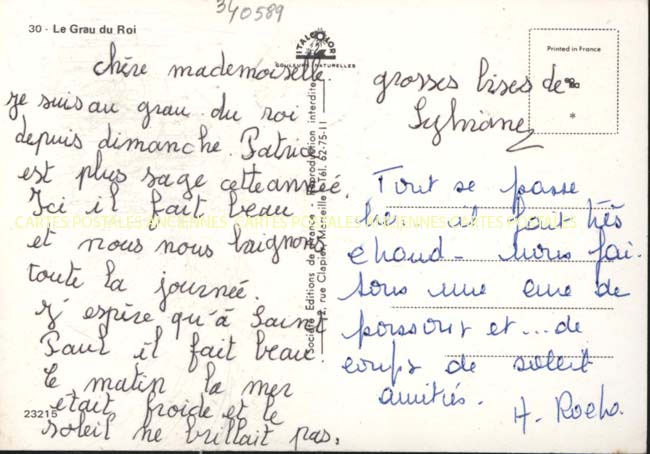 340589
30 - Le Grau du Roi
chère mademoiselle.
je suis au grau du roi
depuis dimanche. Patrice
est plus sage cette année.
Ici il fait beau
et nous nous baignons
toute la journée.
J'espère qu'à Saint
Paul il fait beau.
le matin la mer
était froide et le
soleil ne brillait pas.
23215
ITALCOLOR
COULEURS NATURELLES
Société Editions de France - Reproduction interdite
2, rue Clapier, Marseille - Tél. 62-75-11
Printed in France
*
grosses bises de
Sylviane
Tout se passe
bien il fait très
chaud - nous fai-
sons une cure de
poissons et ... de
coups de soleil
amitiés.
CARTES POSTALES ANCIENNES CARTES POSTALES ANCIENNES CARTES POSTALES ANCIENNES